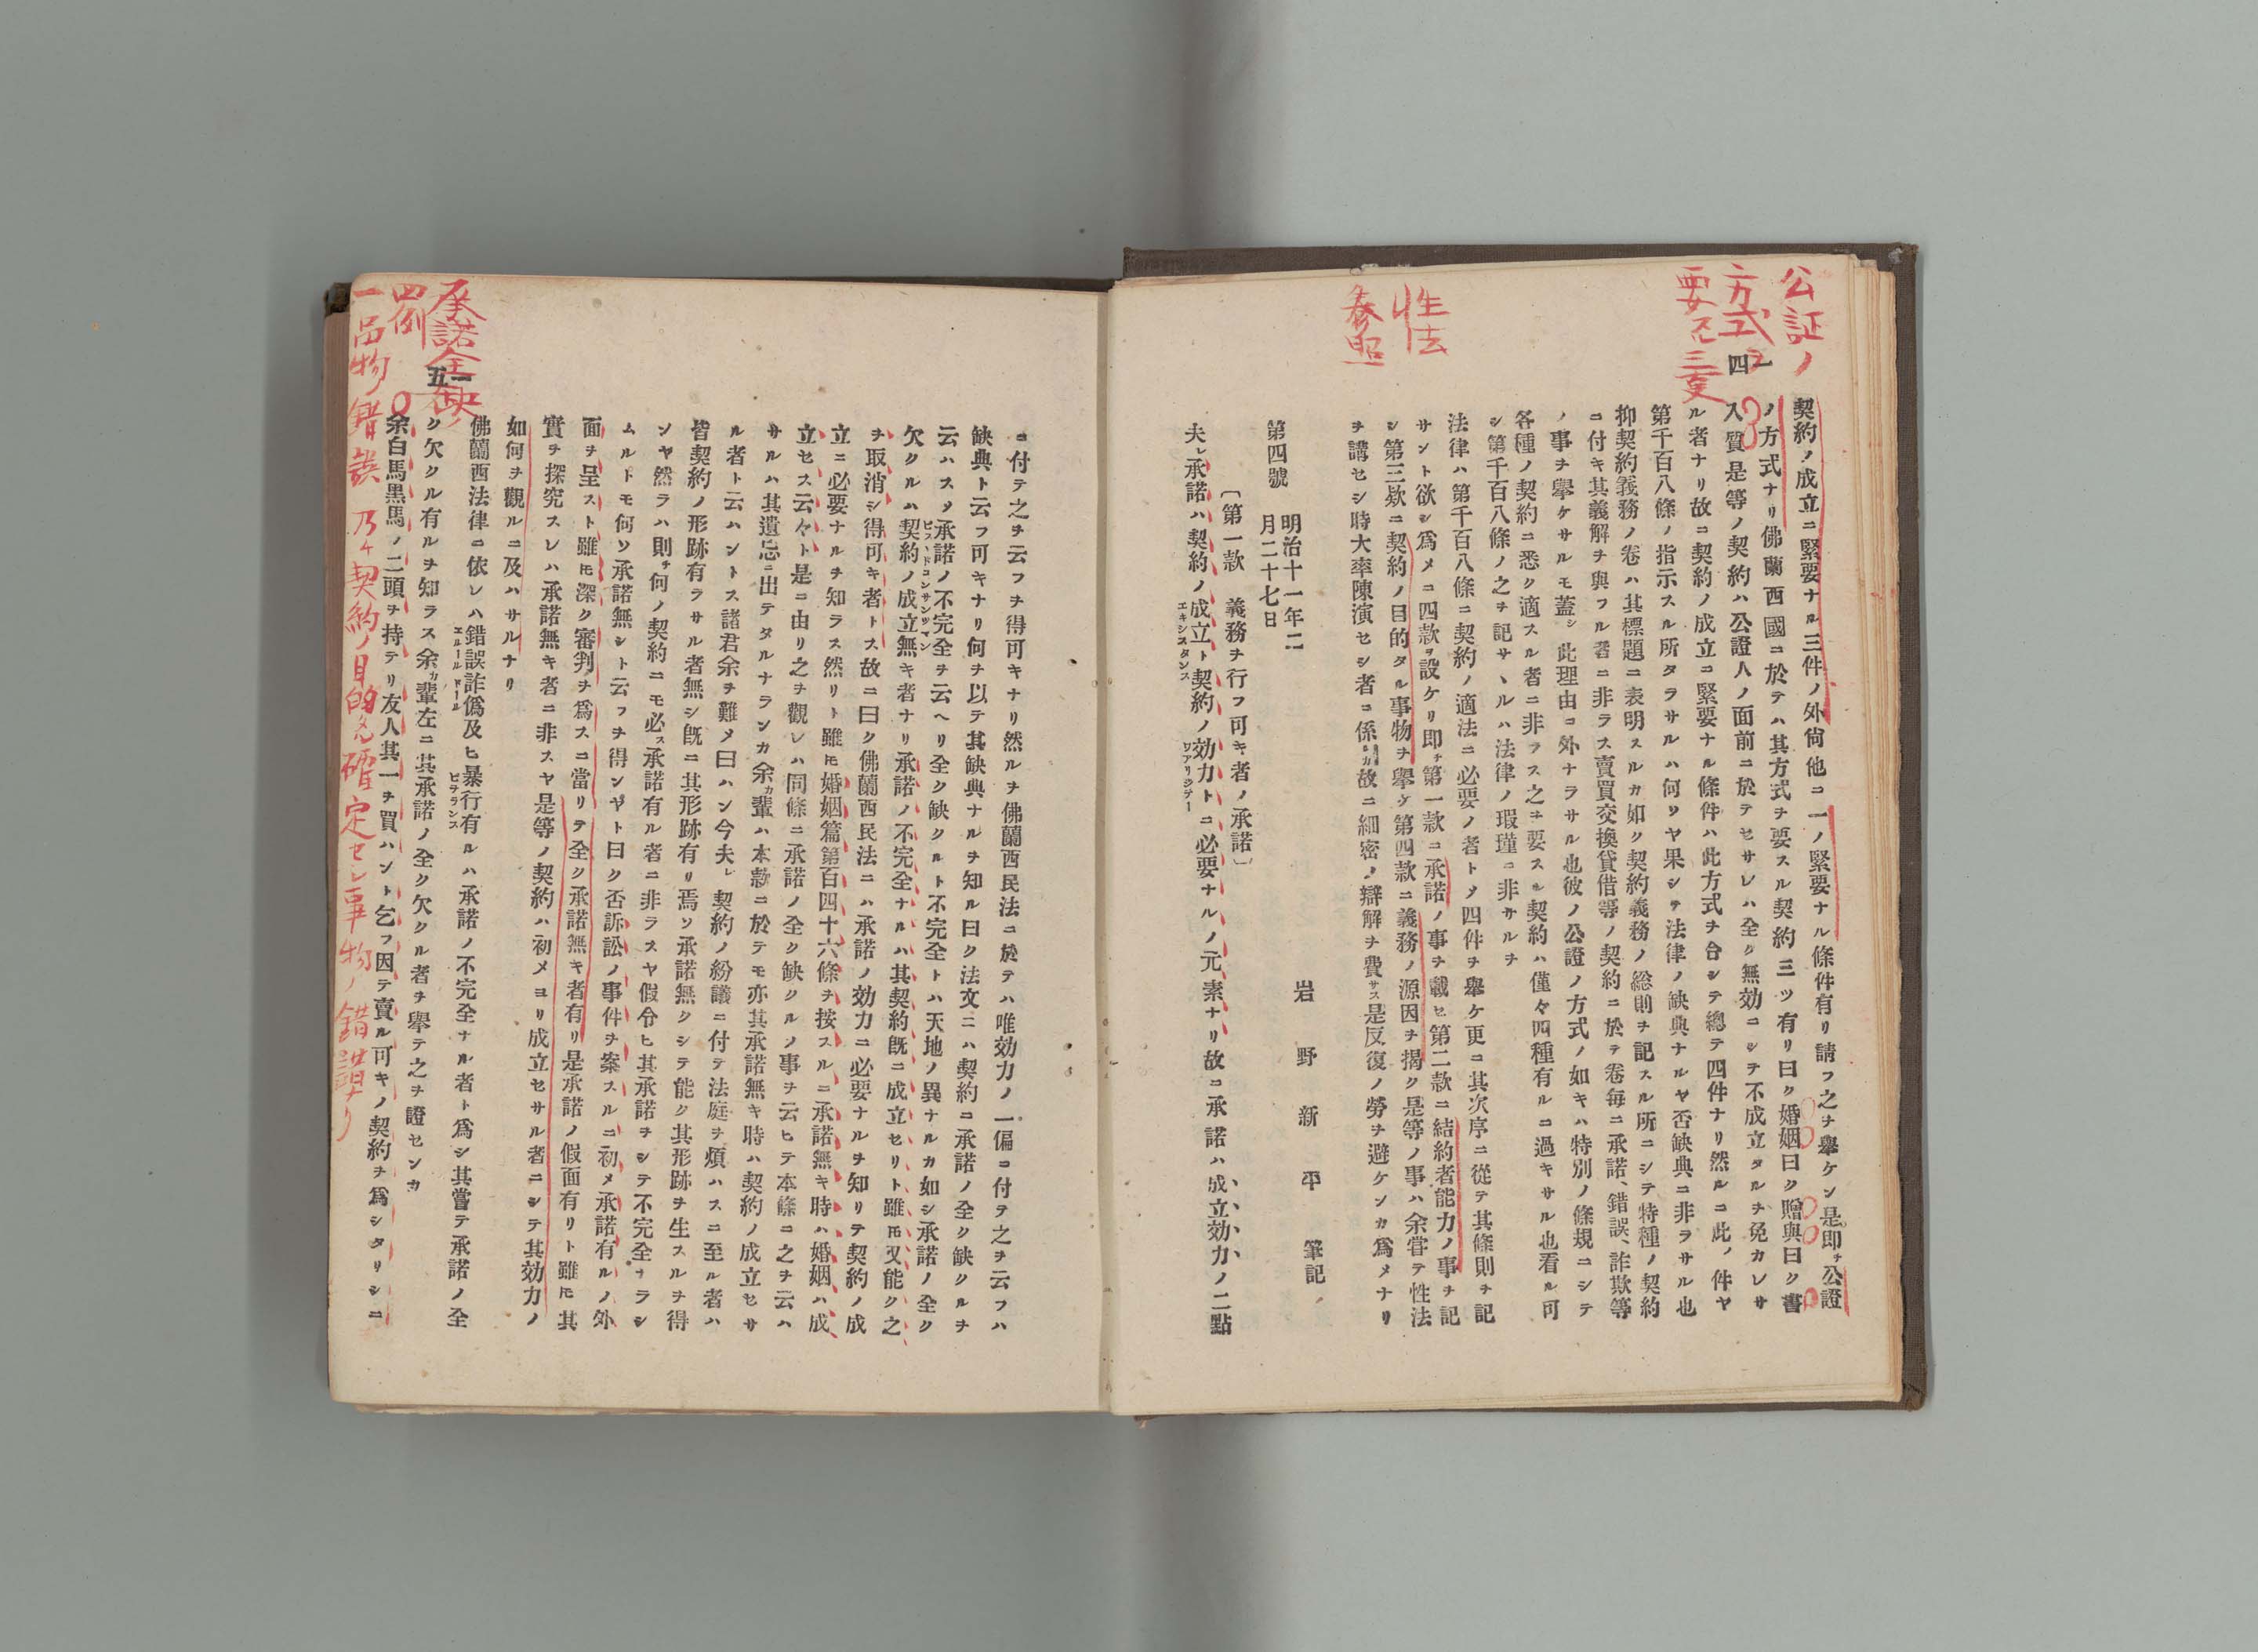 公証ノ
方式ヲ
要スル三
一四
契約ノ成立ニ緊要ナル三件ノ外尙他ニ一ノ緊要ナル條件有リ請フ之ヲ擧ケン是即チ公證
ノ方式ナリ佛蘭西國ニ於テハ其方式ヲ要スル契約三ツ有リ曰ク婚姻曰ク贈與曰ク書
入質是等ノ契約ハ公證人ノ面前ニ於テセサレハ全ク無効ニシテ不成立タルヲ免カレサ
ル者ナリ故ニ契約ノ成立ニ緊要ナル條件ハ此方式ヲ合シテ總テ四件ナリ然ルニ此ノ件ヤ
第千百八條ノ指示スル所タラサルハ何ソヤ果シテ法律ノ缺典ナルヤ否缺典ニ非ラサル也
抑契約義務ノ卷ハ其標題ニ表明スルカ如ク契約義務ノ総則ヲ記スル所ニシテ特種ノ契約
ニ付キ其義解ヲ與フル者ニ非ラス賣買交換貸借等ノ契約ニ於テ卷每ニ承諾、錯誤、詐欺等
ノ事ヲ擧ケサルモ蓋シ此理由ニ外ナラサル也彼ノ公證ノ方式ノ如キハ特別ノ條規ニシテ
各種ノ契約ニ悉ク適スル者ニ非ラス之ヲ要スル契約ハ僅々四種有ルニ過キサル也看ル可
シ第千百八條ノ之ヲ記サヽルハ法律ノ瑕瑾ニ非サルヲ
法律ハ第千百八條ニ契約ノ適法ニ必要ノ者トメ四件ヲ擧ケ更ニ其次序ニ從テ其條則ヲ記
サント欲シ爲メニ四款ヲ設ケリ即チ第一款ニ承諾ノ事ヲ載セ第二款ニ結約者能力ノ事ヲ記
シ第三欵ニ契約ノ目的タル事物ヲ擧ケ第四款ニ義務ノ源因ヲ揭ク是等ノ事ハ余甞テ性法
ヲ講セシ時大率陳演セシ者ニ係ルカ故ニ細密ノ辯解ヲ費サス是反復ノ勞ヲ避ケンカ爲メナリ
性法
参照
岩野新平 筆記
第四號 明治十一年二
月二十七日
〔第一款 義務ヲ行フ可キ者ノ承諾〕
夫レ承諾ハ契約ノ成立ト契約ノ効力トニ必要ナルノ元素ナリ故ニ承諾ハ成立効力ノ二點
エキシスタンス
ワアリジテー
ニ付テ之ヲ云フヲ得可キナリ然ルヲ佛蘭西民法ニ於テハ唯効力ノ一偏ニ付テ之ヲ云フハ
缺典ト云フ可キナリ何ヲ以テ其缺典ナルヲ知ル曰ク法文ニハ契約ニ承諾ノ全ク缺クルヲ
云ハスメ承諾ノ不完全ヲ云ヘリ全ク缺クルト不完全トハ天地ノ異ナルカ如シ承諾ノ全ク
欠クルハ契約ノ成立無キ者ナリ承諾ノ不完全ナルハ其契約既ニ成立セリト雖モ又能ク之
ヲ取消シ得可キ者トス故ニ曰ク佛蘭西民法ニハ承諾ノ効力ニ必要ナルヲ知リテ契約ノ成
立ニ必要ナルヲ知ラス然リト雖モ婚姻篇第百四十六條ヲ按スルニ承諾無キ時ハ婚姻ハ成
立セス云々ト是ニ由リ之ヲ觀レハ同條ニ承諾ノ全ク缺クルノ事ヲ云ヒテ本條ニ之ヲ云ハ
サルハ其遺忘ニ出テタルナランカ余カ輩ハ本款ニ於テモ亦其承諾無キ時ハ契約ノ成立セサ
ル者ト云ハントス諸君余ヲ難メ曰ハン今夫レ契約ノ紛議ニ付テ法庭ヲ煩ハスニ至ル者ハ
皆契約ノ形跡有ラサル者無シ既ニ其形跡有リ焉ソ承諾無クシテ能ク其形跡ヲ生スルヲ得
ンヤ然ラハ則チ何ノ契約ニモ必ス承諾有ル者ニ非ラスヤ假令ヒ其承諾ヲシテ不完全ナラシ
ムルトモ何ソ承諾無シト云フヲ得ンヤト曰ク否訴訟ノ事件ヲ案スルニ初メ承諾有ルノ外
面ヲ呈スト雖モ深ク審判ヲ爲スニ當リテ全ク承諾無キ者有リ是承諾ノ假面有リト雖モ其
實ヲ探究スレハ承諾無キ者ニ非スヤ是等ノ契約ハ初メヨリ成立セサル者ニシテ其効力ノ
如何ヲ觀ルニ及ハサルナリ
佛蘭西法律ニ依レハ錯誤詐僞及ヒ暴行有ルハ承諾ノ不完全ナル者ト爲シ其嘗テ承諾ノ全
エルール
ドール
ビヲランス
ク欠クル有ルヲ知ラス余カ輩左ニ其承諾ノ全ク欠クル者ヲ擧テ之ヲ證センカ
余白馬黑馬ノ二頭ヲ持テリ友人其一ヲ買ハント乞フ因テ賣ル可キノ契約ヲ爲シタリシニ
一五
承諾全缺ノ
四例
一品物ノ錯誤乃チ契約ノ目的タル確定セシ事物ノ錯誤ナリ